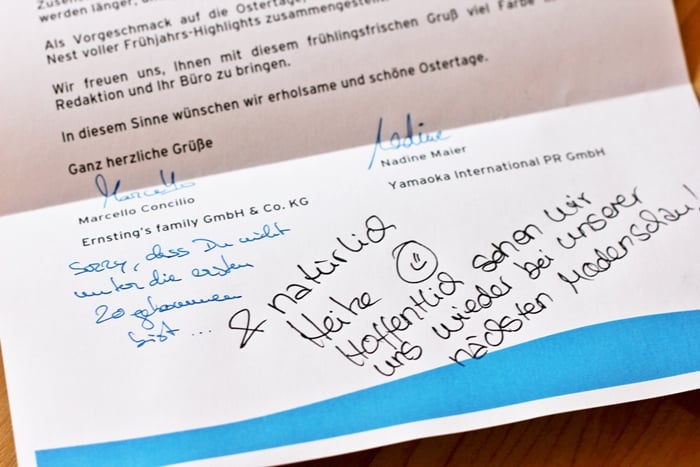 werden länger,
Als Vorgeschmack auf die Ostertage,
Nest voller Frühjahrs-Highlights zusammengestell
Wir freuen uns, Ihnen mit diesem frühlingsfrischen Gruß viel Farbe
Redaktion und Ihr Büro zu bringen.
In diesem Sinne wünschen wir erholsame und schöne Ostertage.
Ganz herzliche Grüße
Marcello
Nadine
Marcello Concilio
Nadine Maier
Ernsting's family GmbH & Co. KG
Yamaoka International PR GmbH
Sorry, dass Du nicht
unter die ersten
20 gekommen
bist ...
& natürlich
Heike ☺
Hoffentlich sehen wir
uns wieder bei unserer
nächsten Modenschau!